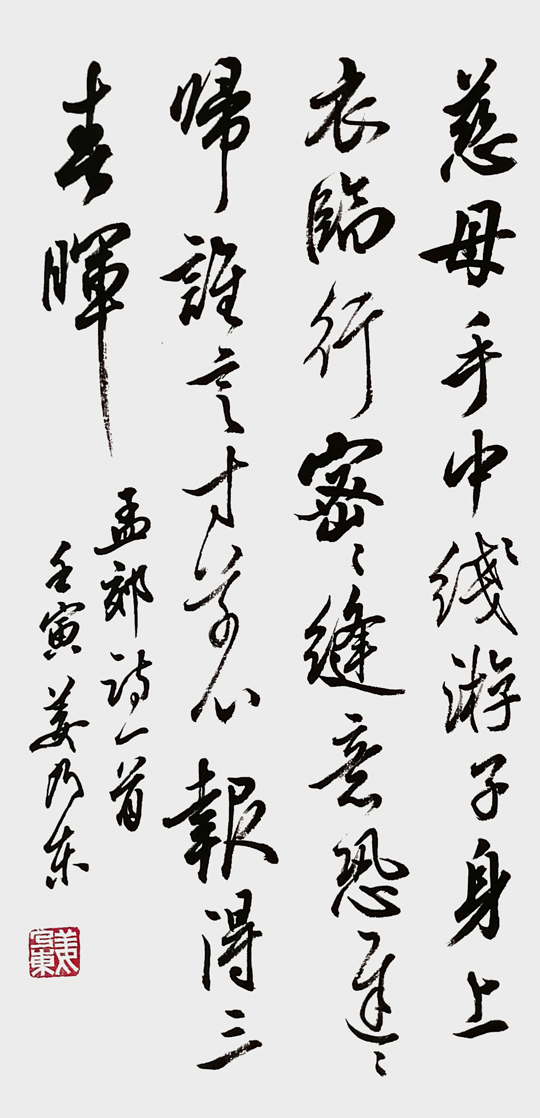 慈母手中綫游子身上
衣臨行密〻縫意恐遲〻
帰誰言寸草心報得三
春暉
孟郊詩一首
壬寅姜乃东